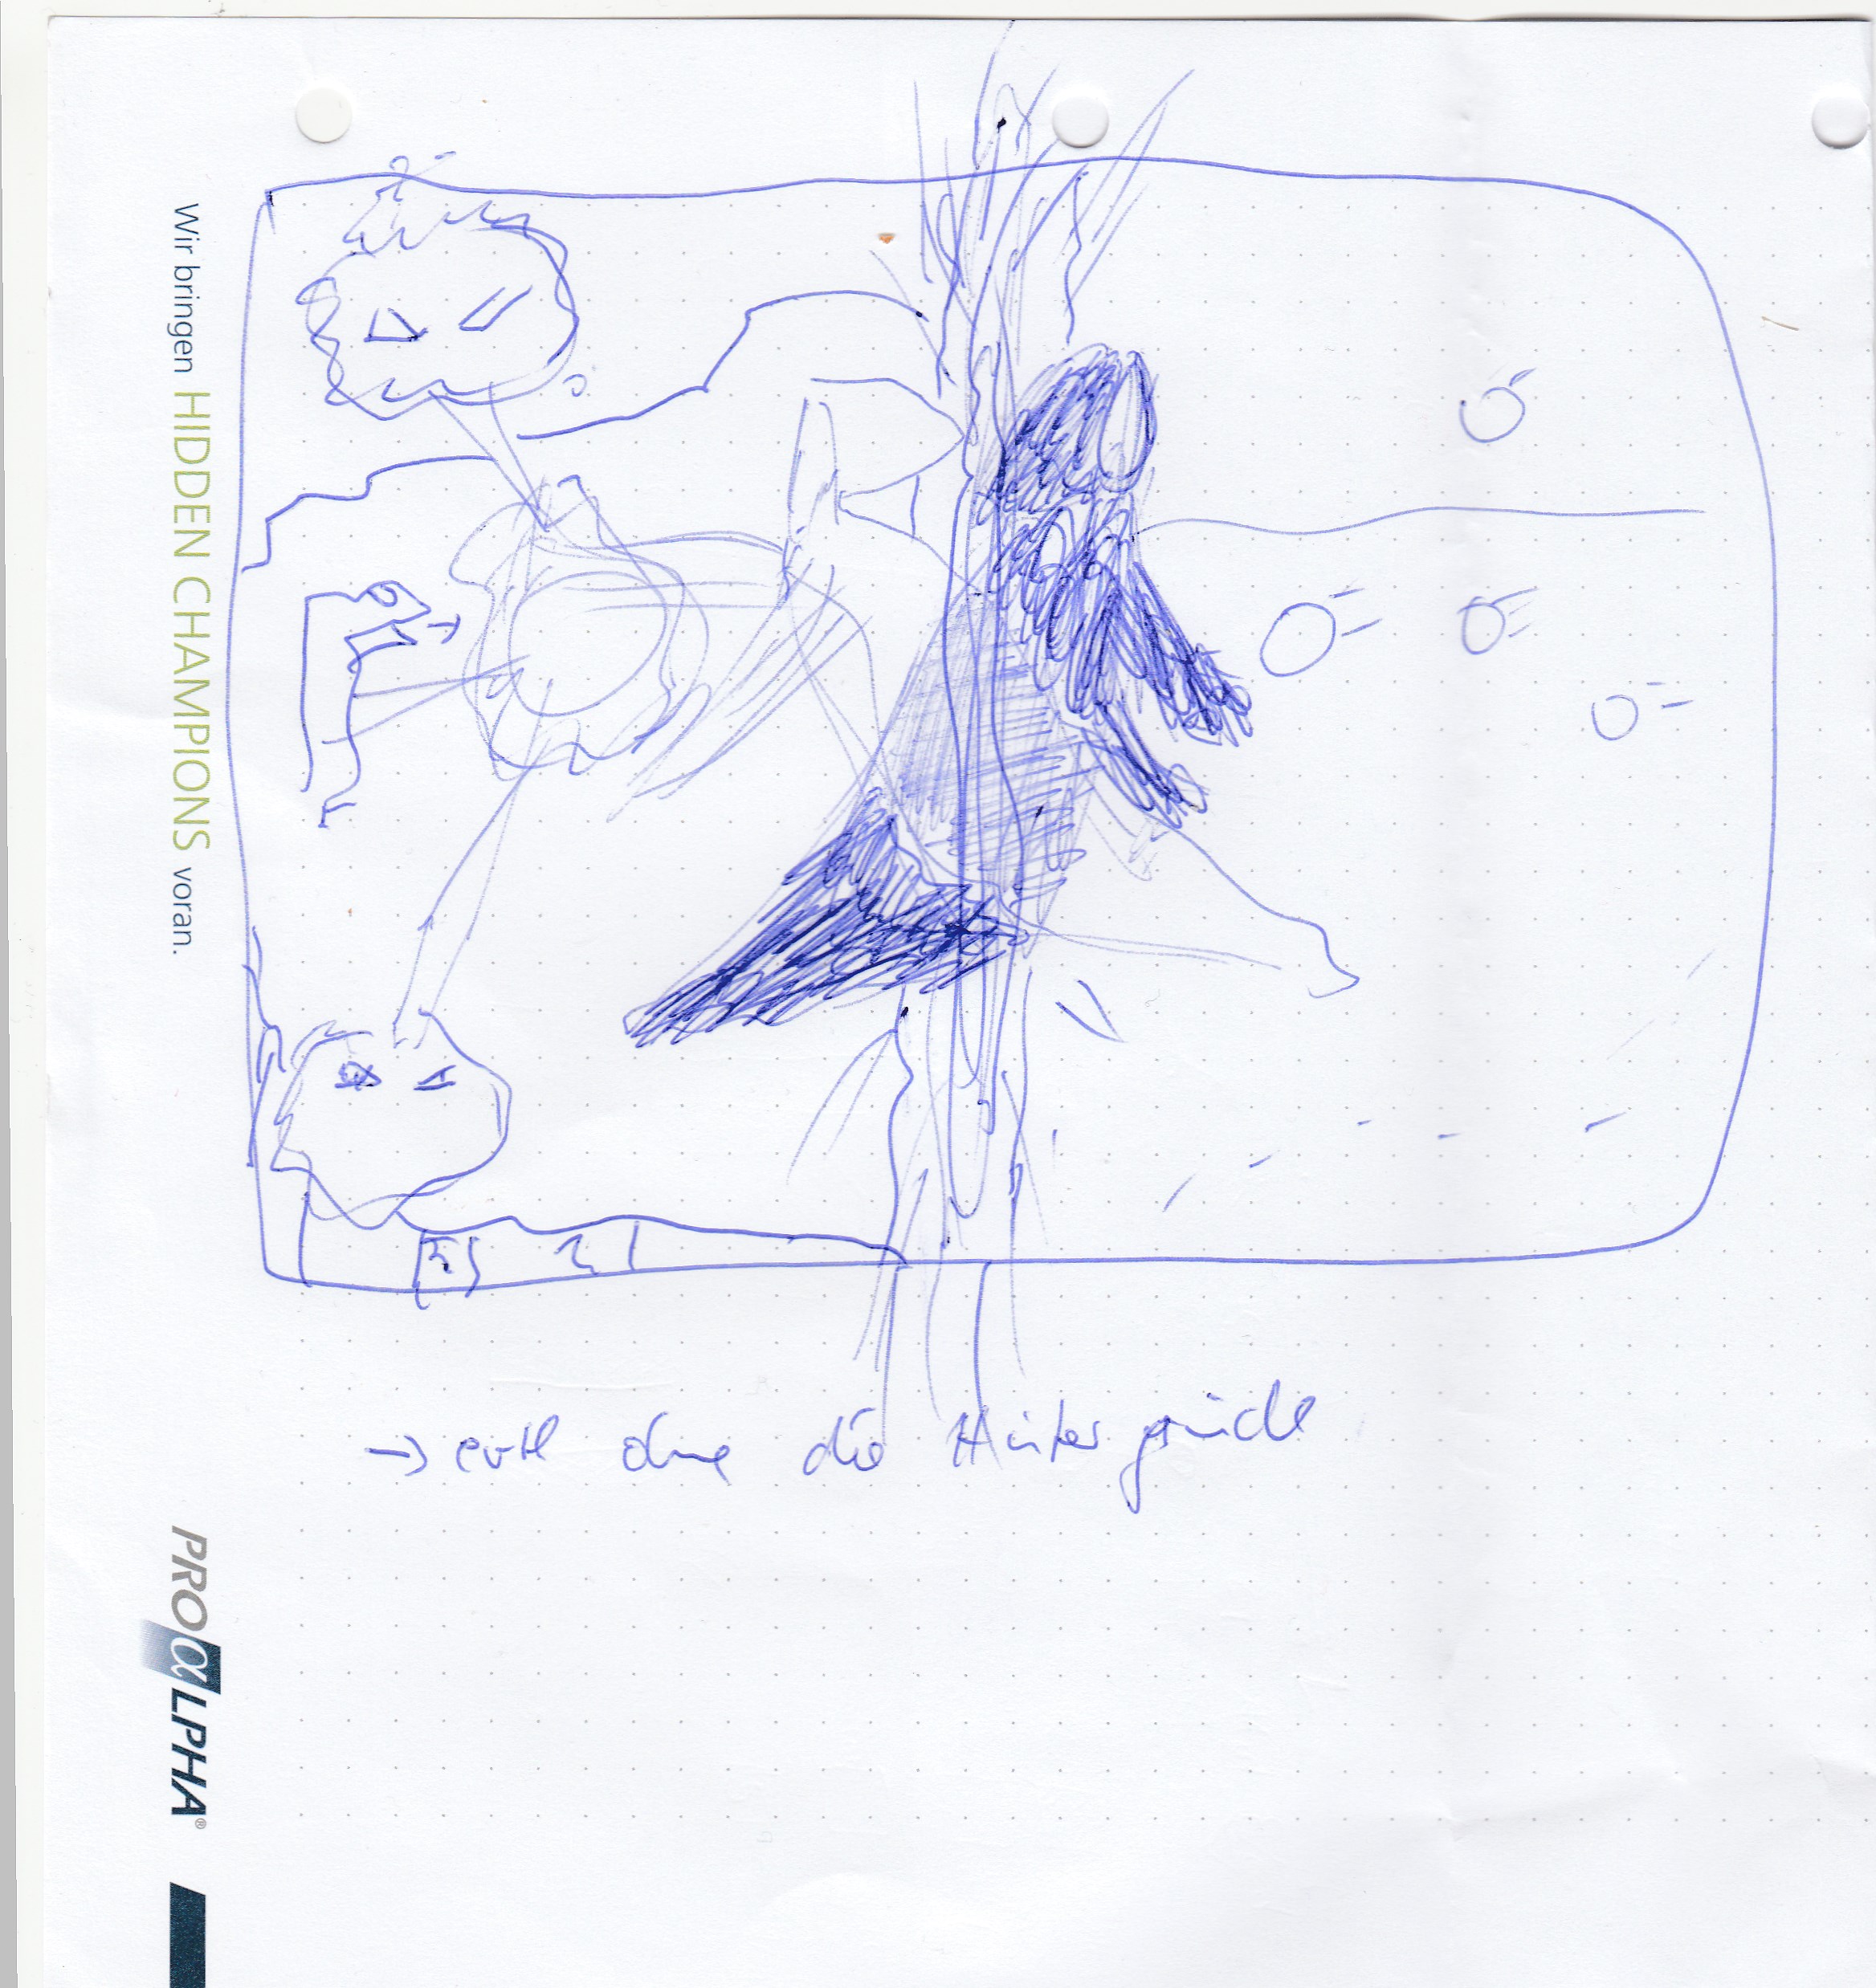 Wir bringen HIDDEN CHAMPIONS voran.
→ evtl ohne die Hintergründe
PROαLPHA®